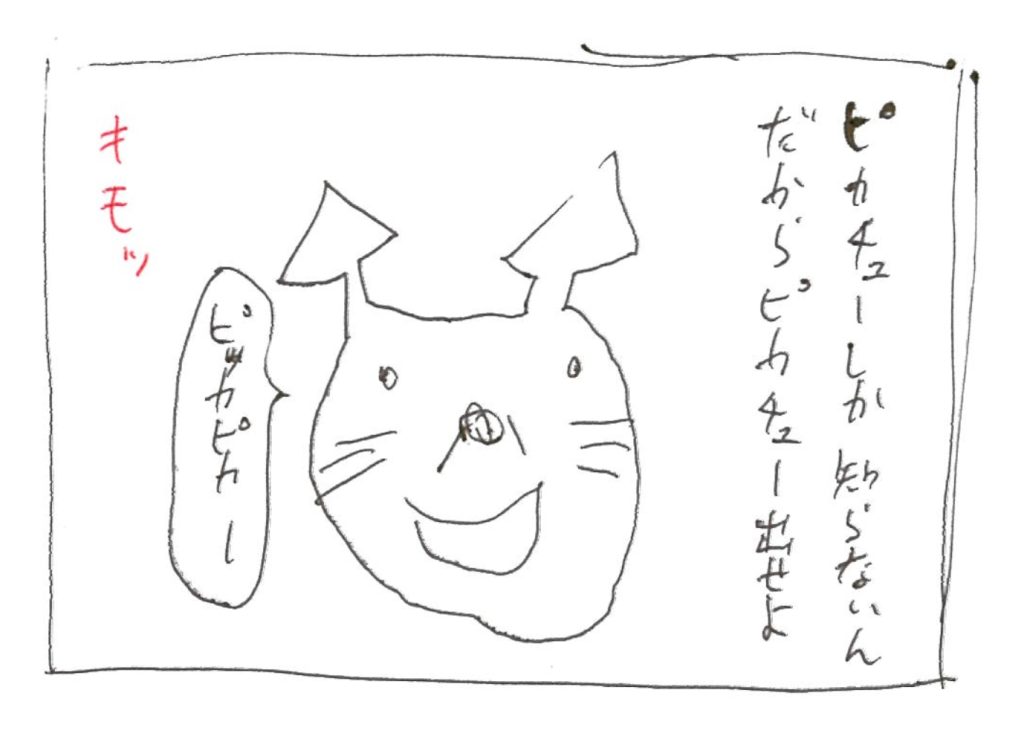 ピカチューしか知らないん
だからピカチュー出せよ
ピッカピカー
キモッ